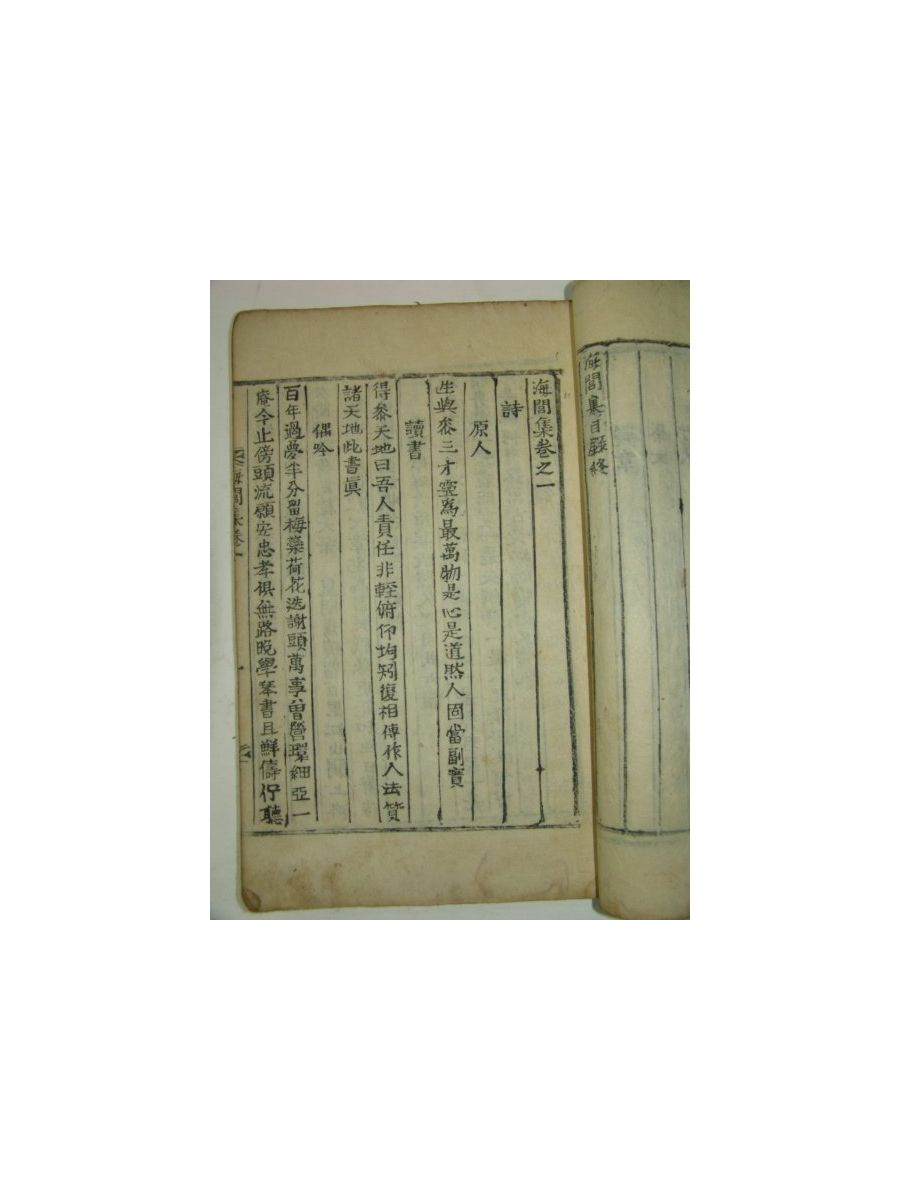 海閭集目錄終
海閭集卷之一
詩
原人
生與參三才靈爲最萬物是心是道㷼人固當副實
讀書
得參天地曰吾人責任非輕俯仰均矧復相傳作人法質
諸天地此書眞
偶吟
百年過夢半分留梅蘂荷花迭謝頭萬事曾營環細亞一
庵今止傍頭流願安忠孝俱無路晩學琴書且鮮儔佇聽
海閭集卷一